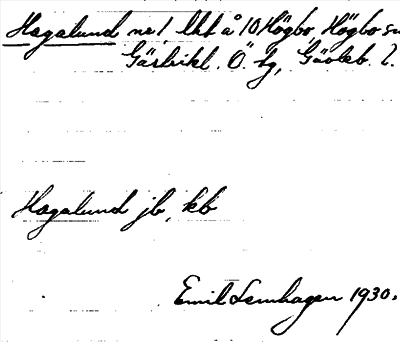 Hagalund nr 1 lht å 10 Högbo, Högbo sn
Gästrikl. Ö. tg, Gävleb. l.
Hagalund jb, kb
Emil Lemhagen 1930.